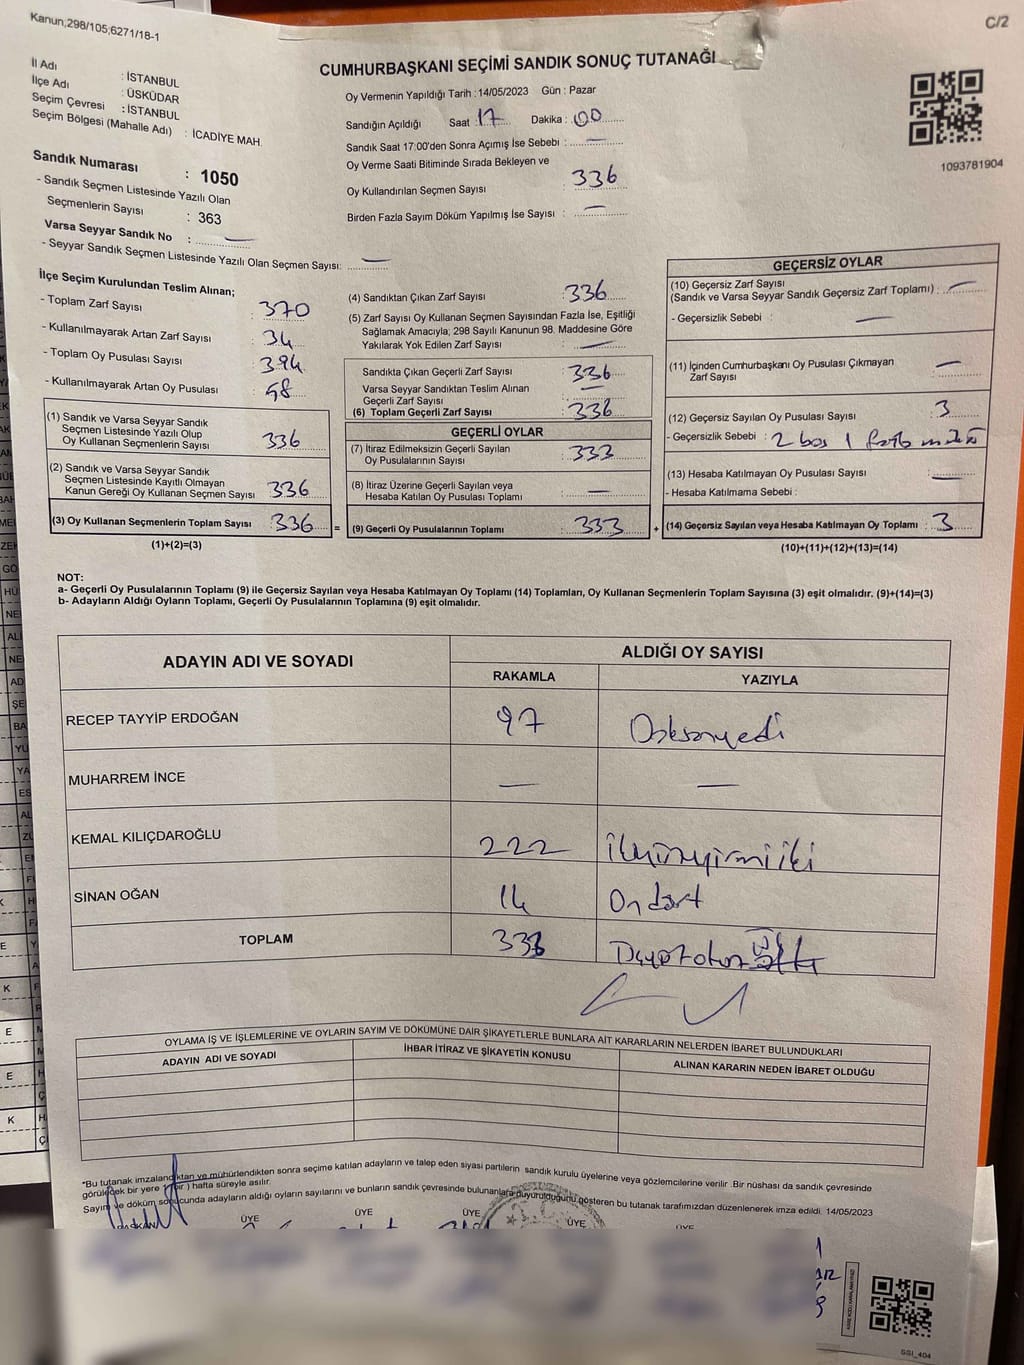 Kanun;298/105;6271/18-1
C/2
CUMHURBAŞKANI SEÇİMİ SANDIK SONUÇ TUTANAĞI
İl Adı : İSTANBUL
İlçe Adı : ÜSKÜDAR
Seçim Çevresi : İSTANBUL
Seçim Bölgesi (Mahalle Adı) : İCADİYE MAH.
Sandık Numarası : 1050
- Sandık Seçmen Listesinde Yazılı Olan
Seçmenlerin Sayısı : 363
Varsa Seyyar Sandık No : —
- Seyyar Sandık Seçmen Listesinde Yazılı Olan Seçmen Sayısı: —
Oy Vermenin Yapıldığı Tarih : 14/05/2023 Gün : Pazar
Sandığın Açıldığı Saat : 17 Dakika : 00
Sandık Saat 17:00'den Sonra Açımış İse Sebebi : —
Oy Verme Saati Bitiminde Sırada Bekleyen ve
Oy Kullandırılan Seçmen Sayısı : 336
Birden Fazla Sayım Döküm Yapılmış İse Sayısı : —
1093781904
İlçe Seçim Kurulundan Teslim Alınan;
- Toplam Zarf Sayısı : 370
- Kullanılmayarak Artan Zarf Sayısı : 34
- Toplam Oy Pusulası Sayısı : 394
- Kullanılmayarak Artan Oy Pusulası : 58
(1) Sandık ve Varsa Seyyar Sandık
Seçmen Listesinde Yazılı Olup
Oy Kullanan Seçmenlerin Sayısı : 336
(2) Sandık ve Varsa Seyyar Sandık
Seçmen Listesinde Kayıtlı Olmayan
Kanun Gereği Oy Kullanan Seçmen Sayısı : 336
(3) Oy Kullanan Seçmenlerin Toplam Sayısı : 336 =
(1)+(2)=(3)
(4) Sandıktan Çıkan Zarf Sayısı : 336
(5) Zarf Sayısı Oy Kullanan Seçmen Sayısından Fazla İse, Eşitliği
Sağlamak Amacıyla; 298 Sayılı Kanunun 98. Maddesine Göre
Yakılarak Yok Edilen Zarf Sayısı : —
Sandıkta Çıkan Geçerli Zarf Sayısı : 336
Varsa Seyyar Sandıktan Teslim Alınan
Geçerli Zarf Sayısı : —
(6) Toplam Geçerli Zarf Sayısı : 336
GEÇERLİ OYLAR
(7) İtiraz Edilmeksizin Geçerli Sayılan
Oy Pusulalarının Sayısı : 333
(8) İtiraz Üzerine Geçerli Sayılan veya
Hesaba Katılan Oy Pusulası Toplamı : —
(9) Geçerli Oy Pusulalarının Toplamı : 333 +
GEÇERSİZ OYLAR
(10) Geçersiz Zarf Sayısı
(Sandık ve Varsa Seyyar Sandık Geçersiz Zarf Toplamı) : —
- Geçersizlik Sebebi : —
(11) İçinden Cumhurbaşkanı Oy Pusulası Çıkmayan
Zarf Sayısı : —
(12) Geçersiz Sayılan Oy Pusulası Sayısı : 3
- Geçersizlik Sebebi : 2 boş 1 fazla
(13) Hesaba Katılmayan Oy Pusulası Sayısı : —
- Hesaba Katılmama Sebebi :
(14) Geçersiz Sayılan veya Hesaba Katılmayan Oy Toplamı : 3
(10)+(11)+(12)+(13)=(14)
NOT:
a- Geçerli Oy Pusulalarının Toplamı (9) ile Geçersiz Sayılan veya Hesaba Katılmayan Oy Toplamı (14) Toplamları, Oy Kullanan Seçmenlerin Toplam Sayısına (3) eşit olmalıdır. (9)+(14)=(3)
b- Adayların Aldığı Oyların Toplamı, Geçerli Oy Pusulalarının Toplamına (9) eşit olmalıdır.
ADAYIN ADI VE SOYADI ALDIĞI OY SAYISI
RAKAMLA YAZIYLA
RECEP TAYYİP ERDOĞAN 97 Doksanyedi
MUHARREM İNCE — —
KEMAL KILIÇDAROĞLU 222 ikiyüzyirmiiki
SİNAN OĞAN 14 Ondört
TOPLAM 333
OYLAMA İŞ VE İŞLEMLERİNE VE OYLARIN SAYIM VE DÖKÜMÜNE DAİR ŞİKAYETLERLE BUNLARA AİT KARARLARIN NELERDEN İBARET BULUNDUKLARI
ADAYIN ADI VE SOYADI İHBAR İTİRAZ VE ŞİKAYETİN KONUSU ALINAN KARARIN NEDEN İBARET OLDUĞU
*Bu tutanak imzalandıktan ve mühürlendikten sonra seçime katılan adayların ve talep eden siyasi partilerin sandık kurulu üyelerine veya gözlemcilerine verilir .Bir nüshası da sandık çevresinde
görülecek bir yere 1 (bir ) hafta süreyle asılır.
Sayım ve döküm sonucunda adayların aldığı oyların sayılarını ve bunların sandık çevresinde bulunanlara duyurulduğunu gösteren bu tutanak tarafımızdan düzenlenerek imza edildi. 14/05/2023
BAŞKAN ÜYE ÜYE ÜYE ÜYE ÜYE
SSI_404